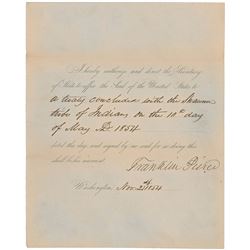 I hereby authorize and direct the Secretary
of State to affix the Seal of the United States to
a treaty concluded with the Shawnee
tribe of Indians on the 10th day
of May 1854
dated this day, and signed by me and for so doing this
shall be his warrant.
Franklin Pierce
Washington, Nov. 2nd 1854